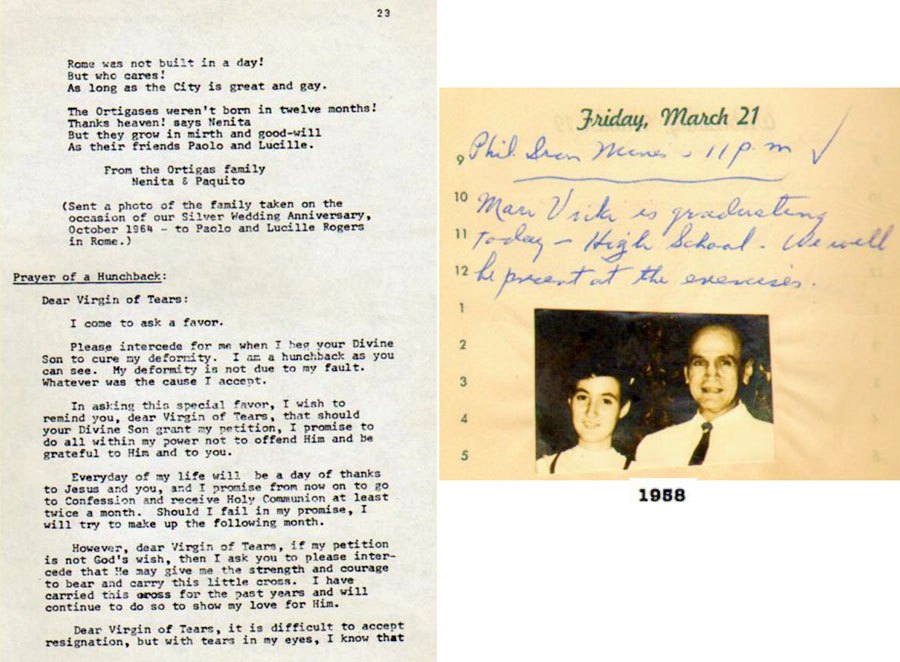 23
Rome was not built in a day!
But who cares!
As long as the City is great and gay.
The Ortigases weren't born in twelve months!
Thanks heaven! says Nenita
But they grow in mirth and good-will
As their friends Paolo and Lucille.
From the Ortigas family
Nenita & Paquito
(Sent a photo of the family taken on the
occasion of our Silver Wedding Anniversary,
October 1964 - to Paolo and Lucille Rogers
in Rome.)
Prayer of a Hunchback:
Dear Virgin of Tears:
I come to ask a favor.
Please intercede for me when I beg your Divine
Son to cure my deformity. I am a hunchback as you
can see. My deformity is not due to my fault.
Whatever was the cause I accept.
In asking this special favor, I wish to
remind you, dear Virgin of Tears, that should
your Divine Son grant my petition, I promise to
do all within my power not to offend Him and be
grateful to Him and to you.
Everyday of my life will be a day of thanks
to Jesus and you, and I promise from now on to go
to Confession and receive Holy Communion at least
twice a month. Should I fail in my promise, I
will try to make up the following month.
However, dear Virgin of Tears, if my petition
is not God's wish, then I ask you to please inter-
cede that He may give me the strength and courage
to bear and carry this little cross. I have
carried this cross for the past years and will
continue to do so to show my love for Him.
Dear Virgin of Tears, it is difficult to accept
resignation, but with tears in my eyes, I know that
Friday, March 21
9 Phil. Iron Mines - 11 p.m ✓
10 Mari Vicki is graduating
11 today - High School. We will
12 be present at the exercises.
1
2
3
4
5
1958